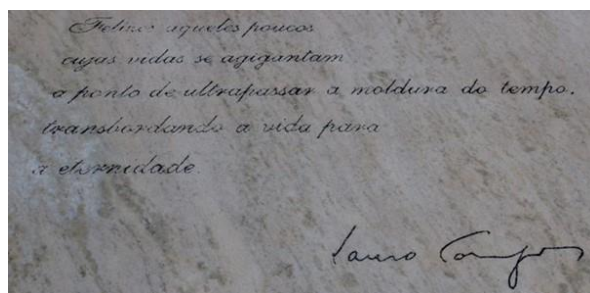 Felizes aqueles poucos
cujas vidas se agigantam
a ponto de ultrapassar a moldura do tempo.
transbordando a vida para
a eternidade.
Lauro